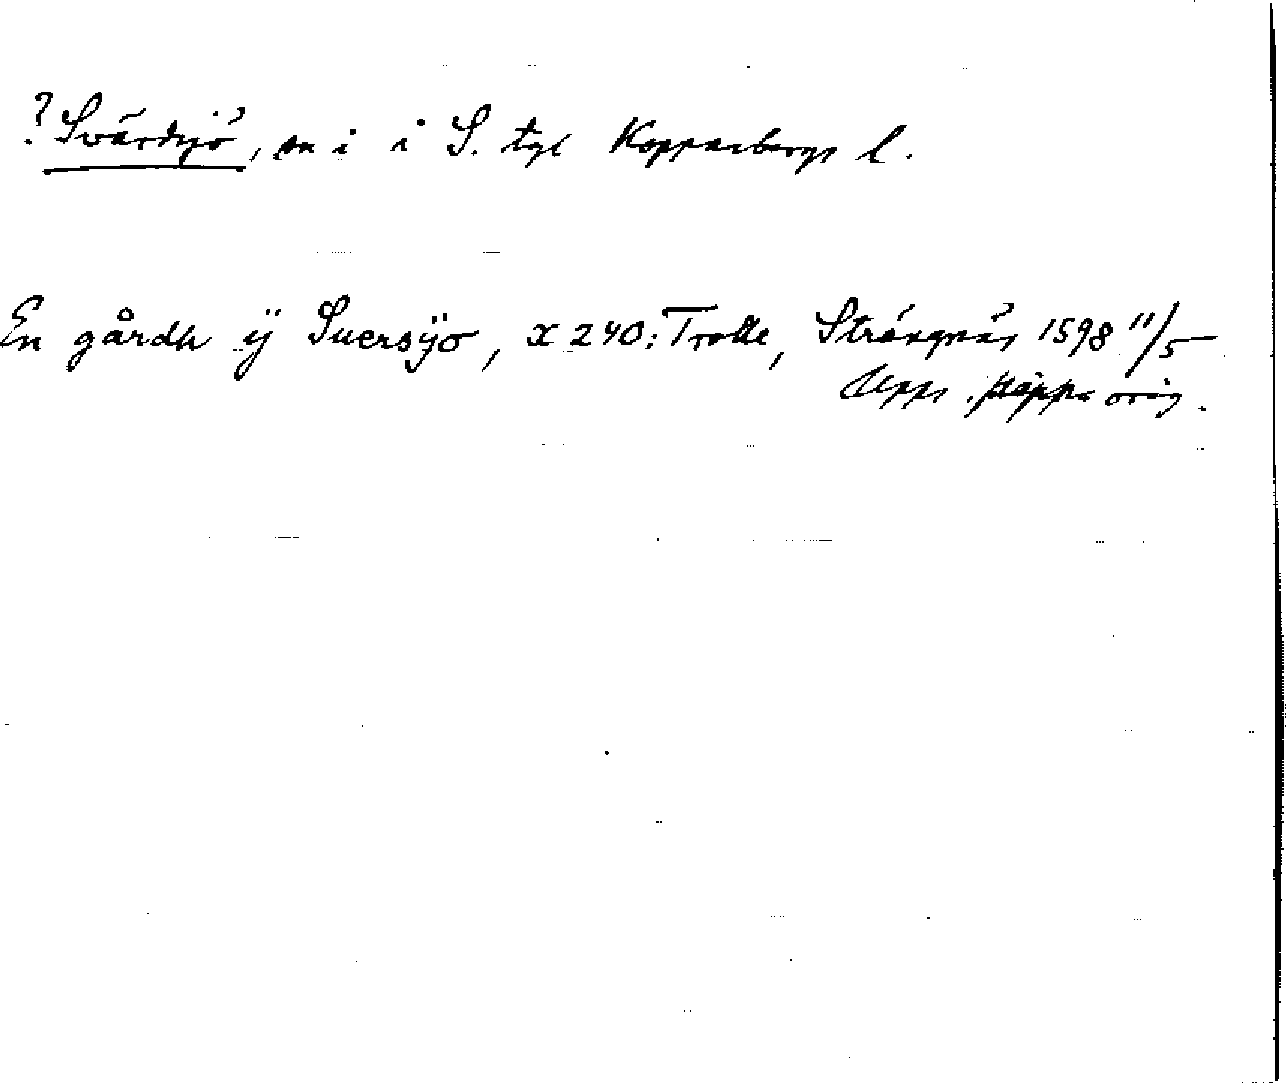 ? Svärdsjö, sn i i S. tgl Kopparbergs l.
En gårdh ÿ Suersÿo, x 240: Trolle, Strängnäs 1598 11/5
Upps. pappr orig.